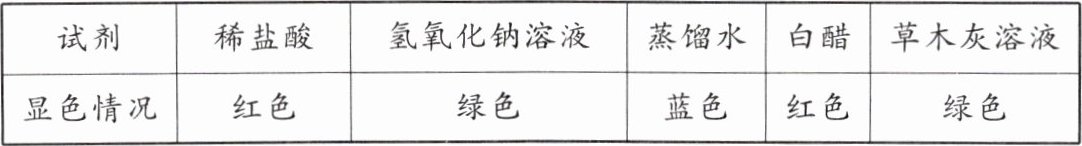 试剂 稀盐酸 氢氧化钠溶液 蒸馏水 白醋 草木灰溶液
显色情况 红色 绿色 蓝色 红色 绿色